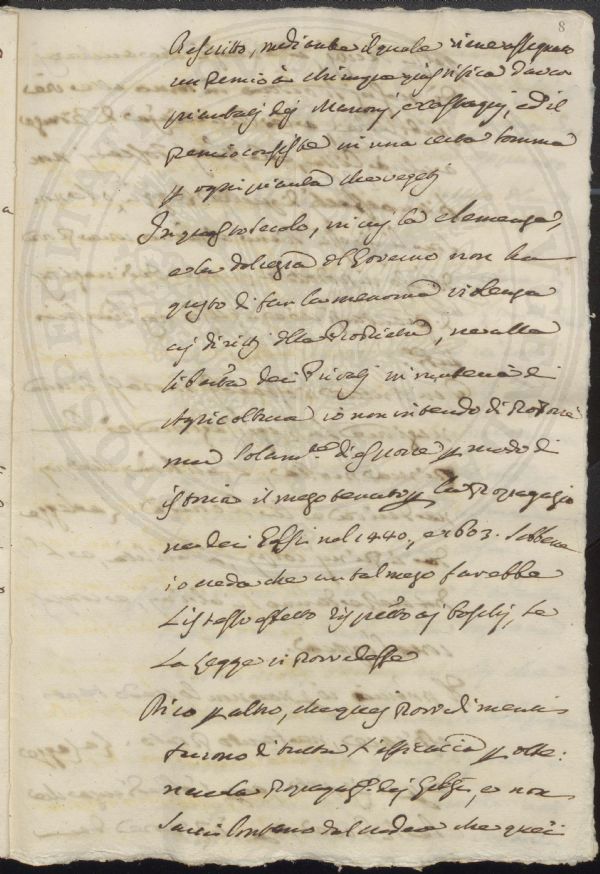 8
Rescritto, mediante il quale viene assegnato
un Premio à chiunque giustifica d'aver
piantati dei Maroni, e Castagni, ed il
Premio consiste in una certa somma
p ogni pianta che vegeti
In questo secolo, in cui la clemenza,
e la dolcezza del Governo non ha
gusto di far la menoma violenza
ai diritti della Proprietà, ne alla
libertà dei Privati in materia di
Agricoltura io non intendo di Proporre
ma solam.te di esporre p modo di
istoria il mezzo tenuto p la Propagazio
ne dei Gelsi nel 1440., e 1603. Sebbene
io creda che un tal mezzo farebbe
L'istesso effetto rispetto ai boschi, se
La Legge vi Provvedesse
Dico p altro, che quei Provvedimenti
furono di tutta L'efficacia p otte:
nere la Propagaz.e dei Gelsi, e non
sarei lontano dal credere che quei